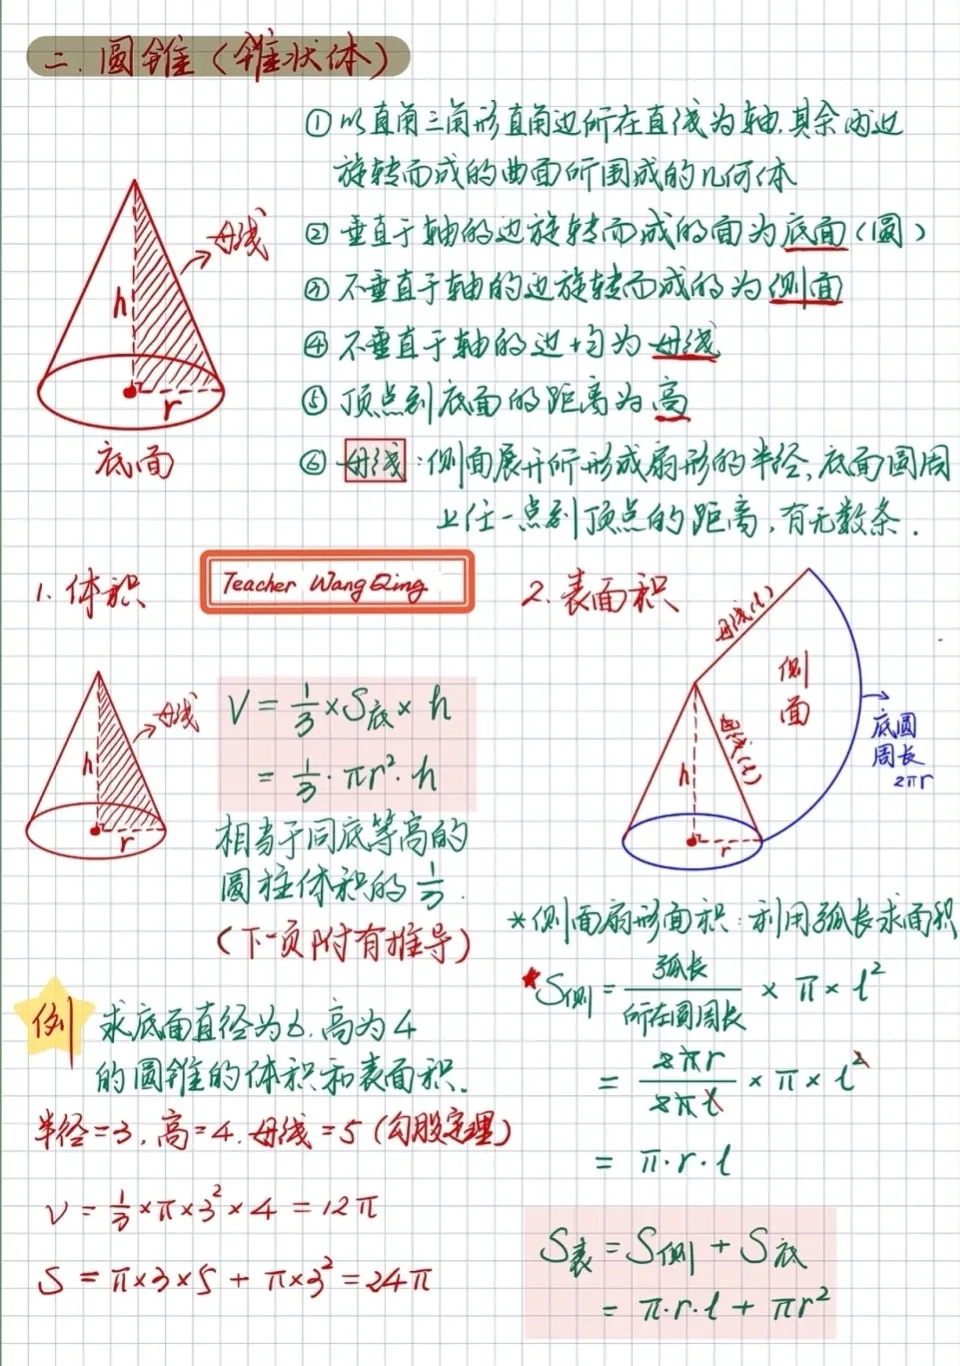 二.圆锥(锥状体)
①以直角三角形直角边所在直线为轴,其余两边
旋转而成的曲面所围成的几何体
②垂直于轴的边旋转而成的面为底面(圆)
③不垂直于轴的边旋转而成的为侧面
④不垂直于轴的边均为母线
⑤顶点到底面的距离为高
⑥母线:侧面展开所形成扇形的半径,底面圆周
上任一点到顶点的距离,有无数条.
母线
h
r
底面
1.体积
Teacher Wang Qing
母线
h
r
V=1/3×S底×h
=1/3·πr²·h
相当于同底等高的
圆柱体积的1/3.
(下一页附有推导)
例 求底面直径为6,高为4
的圆锥的体积和表面积.
半径=3,高=4,母线=5(勾股定理)
V=1/3×π×3²×4=12π
S=π×3×5+π×3²=24π
2.表面积
母线(l)
侧
面
母线(l)
h
r
底圆
周长
2πr
*侧面扇形面积:利用弧长求面积
★S侧=弧长/所在圆周长×π×l²
=2πr/2πl×π×l²
=π·r·l
S表=S侧+S底
=π·r·l+πr²